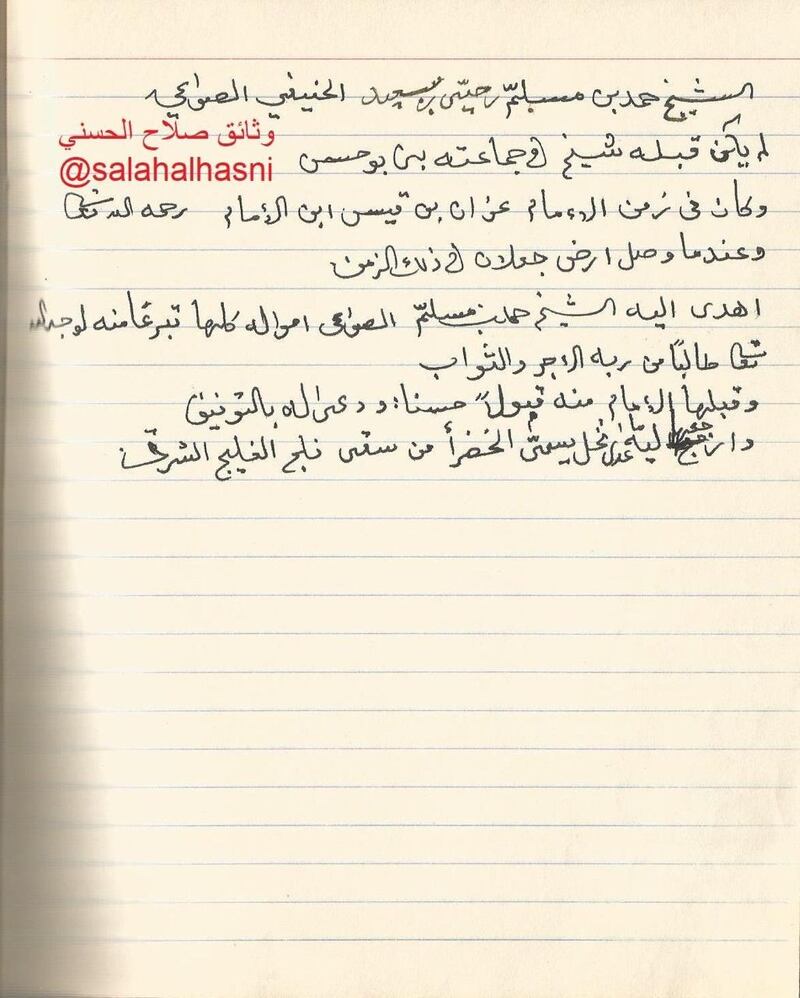 الشيخ حمد بن مسلم رحيّى بن سعيد الحنيفي الصواعي
وثائق صلاح الحسني
لم يكن قبله شيخ في جماعته بني بوحسن
@salahalhasni
وكان في زمن الامام عزان بن قيس ابن الإمام رحمه الله تعالى
وعندما وصل ارض جعلان في ذلك الزمن
اهدى اليه الشيخ حمد بن مسلم الصواعى امواله كلها تبرعًا منه لوجه الله
تعالى طالبًا من ربه الاجر والثواب
وقبلها الإمام منه قبولاً حسنا، ودعى له بالتوفيق
وارجع نخل يسمىّ الخضرأ من سقى فلج الفليج الشرقي